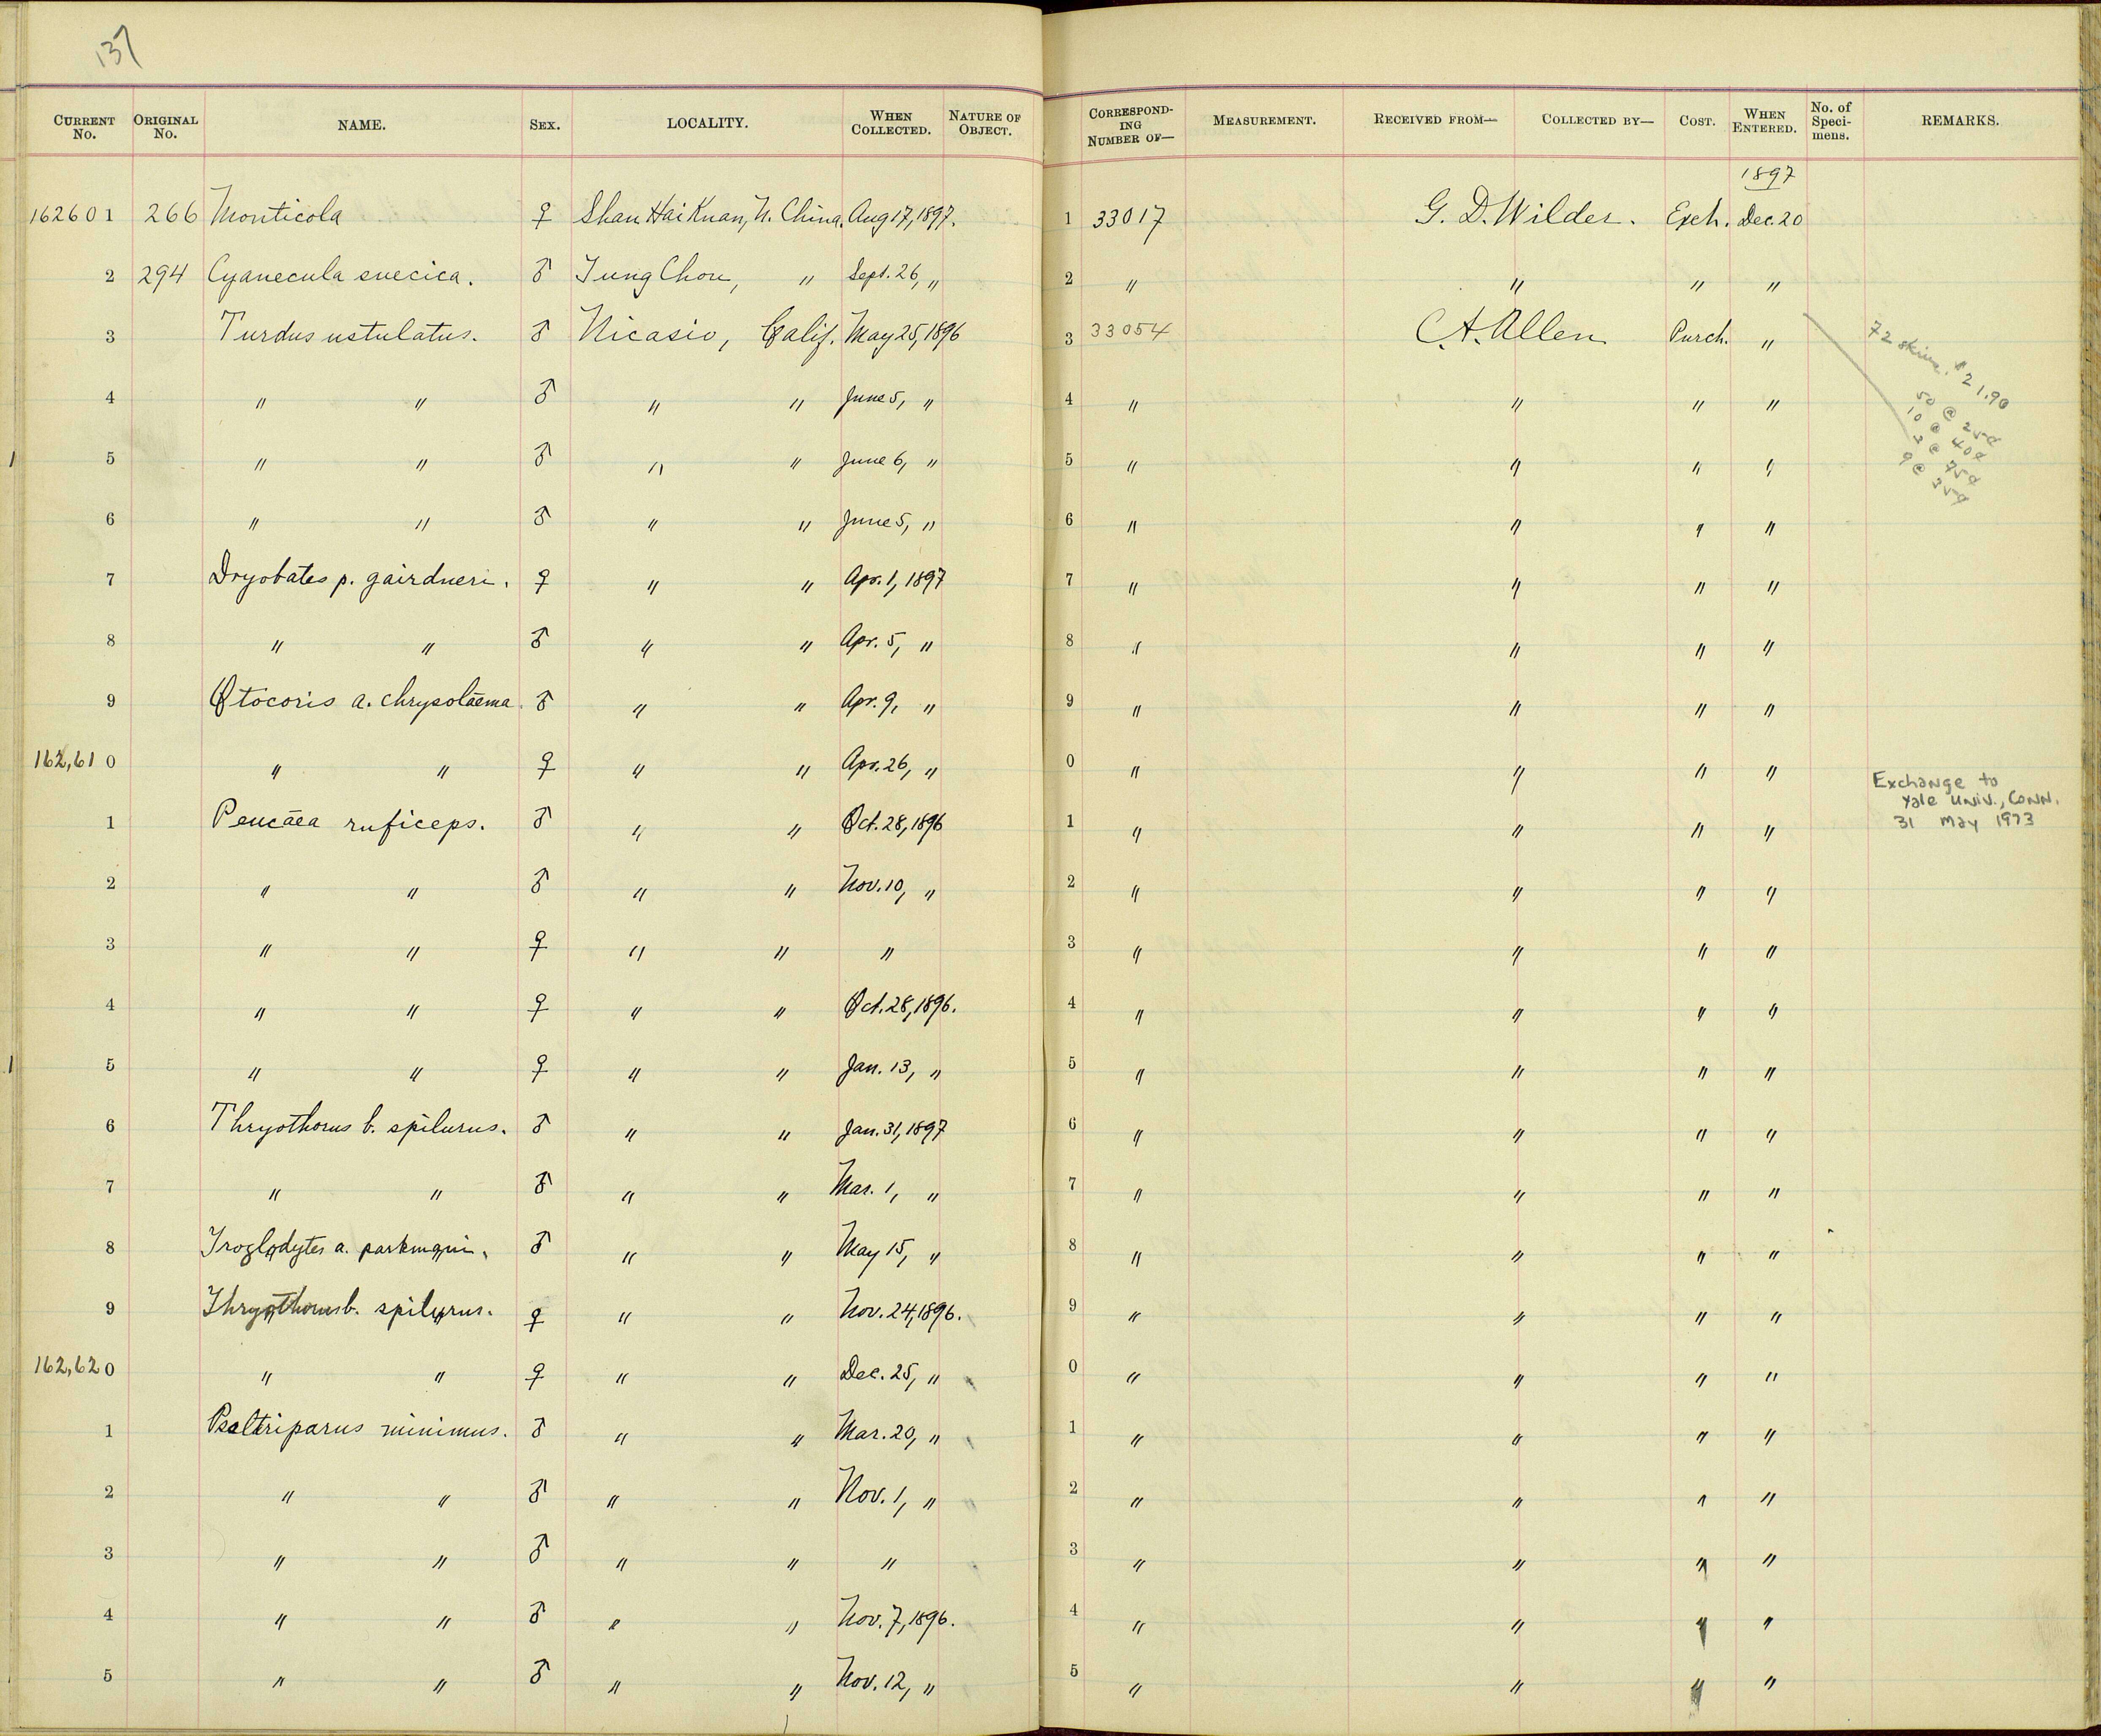 137
CURRENT No. ORIGINAL No. NAME. SEX. LOCALITY. WHEN COLLECTED. NATURE OF OBJECT. CORRESPONDING NUMBER OF— MEASUREMENT. RECEIVED FROM— COLLECTED BY— COST. WHEN ENTERED. No. of Specimens. REMARKS.
1897
162601 266 Monticola ♀ Shan Hai Kuan, N. China. Aug 17, 1897. 1 33017 G. D. Wilder. Exch. Dec. 20
2 294 Cyanecula suecica. ♂ Tung Chou, " Sept. 26, " 2 " " " "
3 Turdus ustulatus. ♂ Nicasio, Calif. May 25, 1896 3 33054 C. A. Allen Purch. " 72 skins. $21.90
4 " " ♂ " " June 5, " 4 " " " " 50 @ 25¢
10 @ 40¢
5 " " ♂ " " June 6, " 5 " " " " 3 @ 75¢
9 @ 35¢
6 " " ♂ " " June 5, " 6 " " " "
7 Dryobates p. gairdneri. ♀ " " Apr. 1, 1897 7 " " " "
8 " " ♂ " " Apr. 5, " 8 " " " "
9 Otocoris a. chrysolaema. ♂ " " Apr. 9, " 9 " " " "
162,610 " " ♀ " " Apr. 26, " 0 " " " "
1 Peucaea ruficeps. ♂ " " Oct. 28, 1896 1 " " " " Exchange to
Yale Univ., Conn.
31 May 1973
2 " " ♂ " " Nov. 10, " 2 " " " "
3 " " ♀ " " " 3 " " " "
4 " " ♀ " " Oct. 28, 1896. 4 " " " "
5 " " ♀ " " Jan. 13, " 5 " " " "
6 Thryothorus b. spilurus. ♂ " " Jan. 31, 1897 6 " " " "
7 " " ♂ " " Mar. 1, " 7 " " " "
8 Troglodytes a. parkmanii. ♂ " " May 15, " 8 " " " "
9 Thryothorus b. spilurus. ♀ " " Nov. 24, 1896. 9 " " " "
162,620 " " ♀ " " Dec. 25, " 0 " " " "
1 Psaltriparus minimus. ♂ " " Mar. 20, " 1 " " " "
2 " " ♂ " " Nov. 1, " 2 " " " "
3 " " ♂ " " " 3 " " " "
4 " " ♂ " " Nov. 7, 1896. 4 " " " "
5 " " ♂ " " Nov. 12, " 5 " " " "